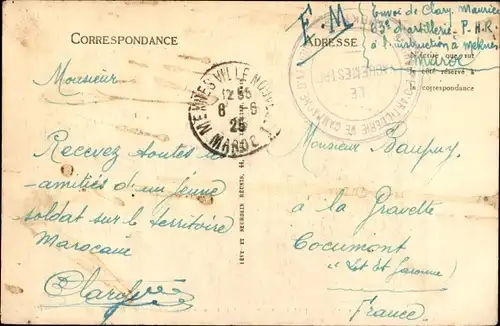 CORRESPONDANCE
Monsieur
Recevez toutes
amitiés d'un jeune
soldat sur le territoire
Marocain
Clary
MEKNES VILLE NOUVELLE
12 35
8 - 6
25
MAROC
LÉVY ET NEURDEIN RÉUNIS, 44,
F.M
ADRESSE
Envoi de Clary Maurice
63e d'artillerie - P.H.R.
à l'instruction à Meknès
Maroc
N'écrire que sur
le côté réservé à
la correspondance
LE
Monsieur Baupuy
à la Gravette
Cocumont
Lot et Garonne
France